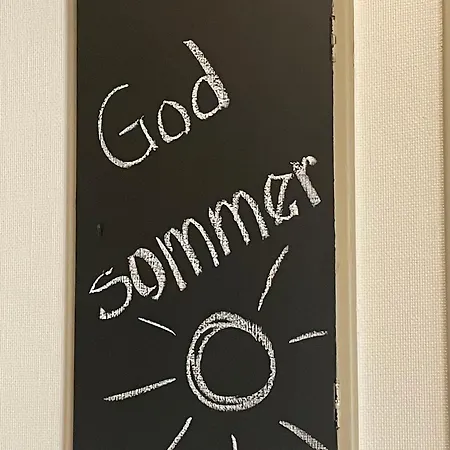 God
sommer